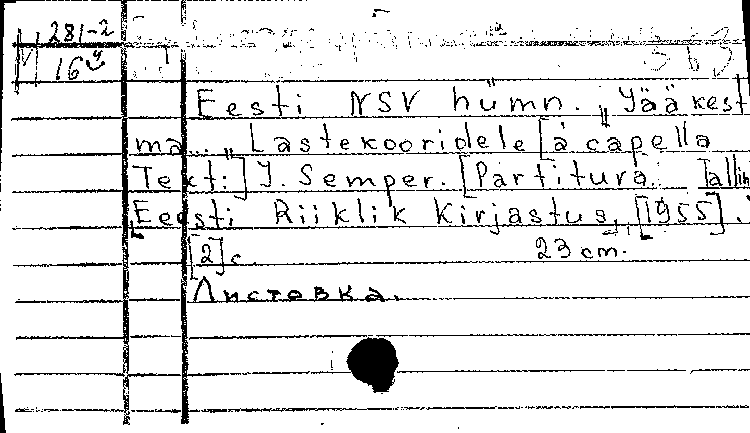 М 281-2
16
Eesti NSV hümn. „Jääkest
ma..." Lastekooridele [a capella
Tekt:] J. Semper. [Partitura. Tallin
Eesti Riiklik Kirjastus, [1955].
[2] с. 23 cm.
Листовка.